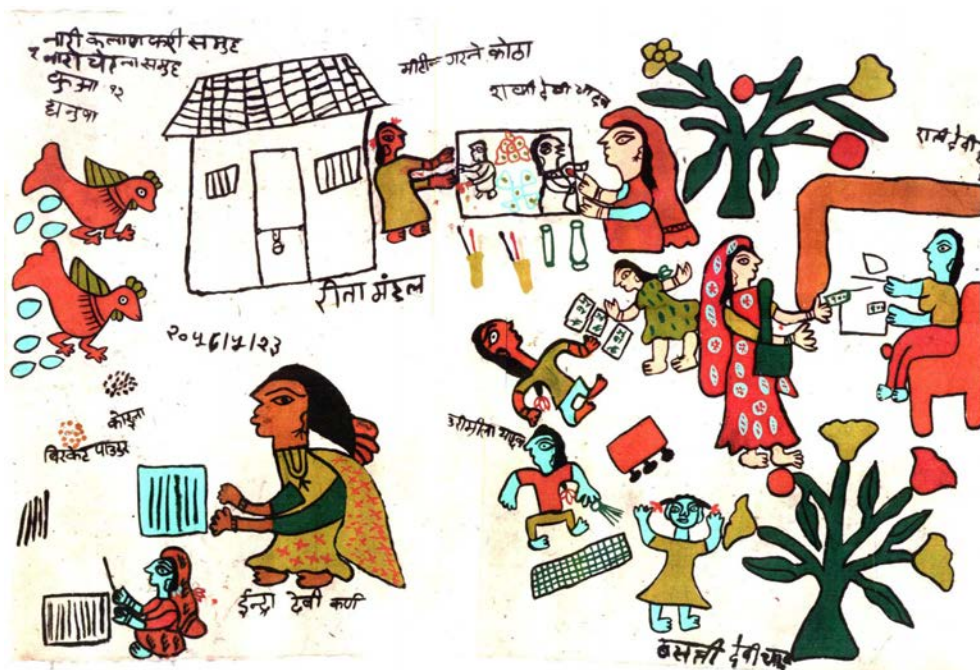 नारी कल्याणकारी समुह
१ नारी चेतना समुह
कुआ १२
धनुषा
मीटीङ गरने कोठा
शान्ती देवी यादव
रीता मंडल
२०५६/५/२३
कोइला
बिस्कुट पाउडर
उरमिला यादव
ईन्द्रा देवी कर्ण
बसन्ती देवी यादव